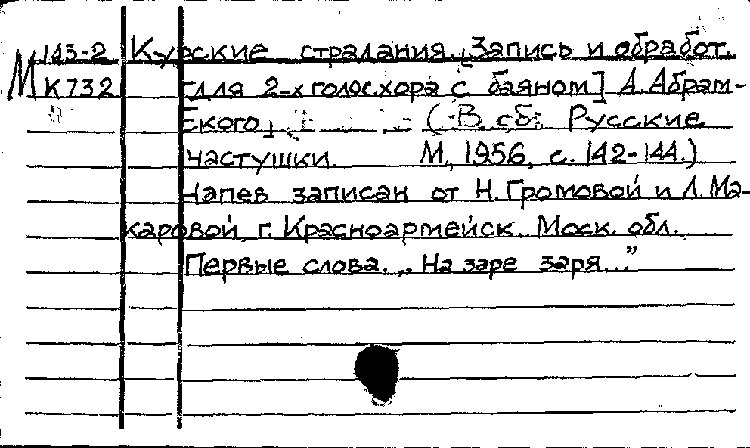 М 143-2 Курские страдания. [Запись и обработ.
К732 для 2-х голос. хора с баяном] А. Абрам-
ского. (В сб: Русские
частушки. М., 1956, с. 142-144.)
Напев записан от Н. Громовой и Л. Ма-
каровой, г. Красноармейск. Моск. обл.
Первые слова. „На заре заря..."